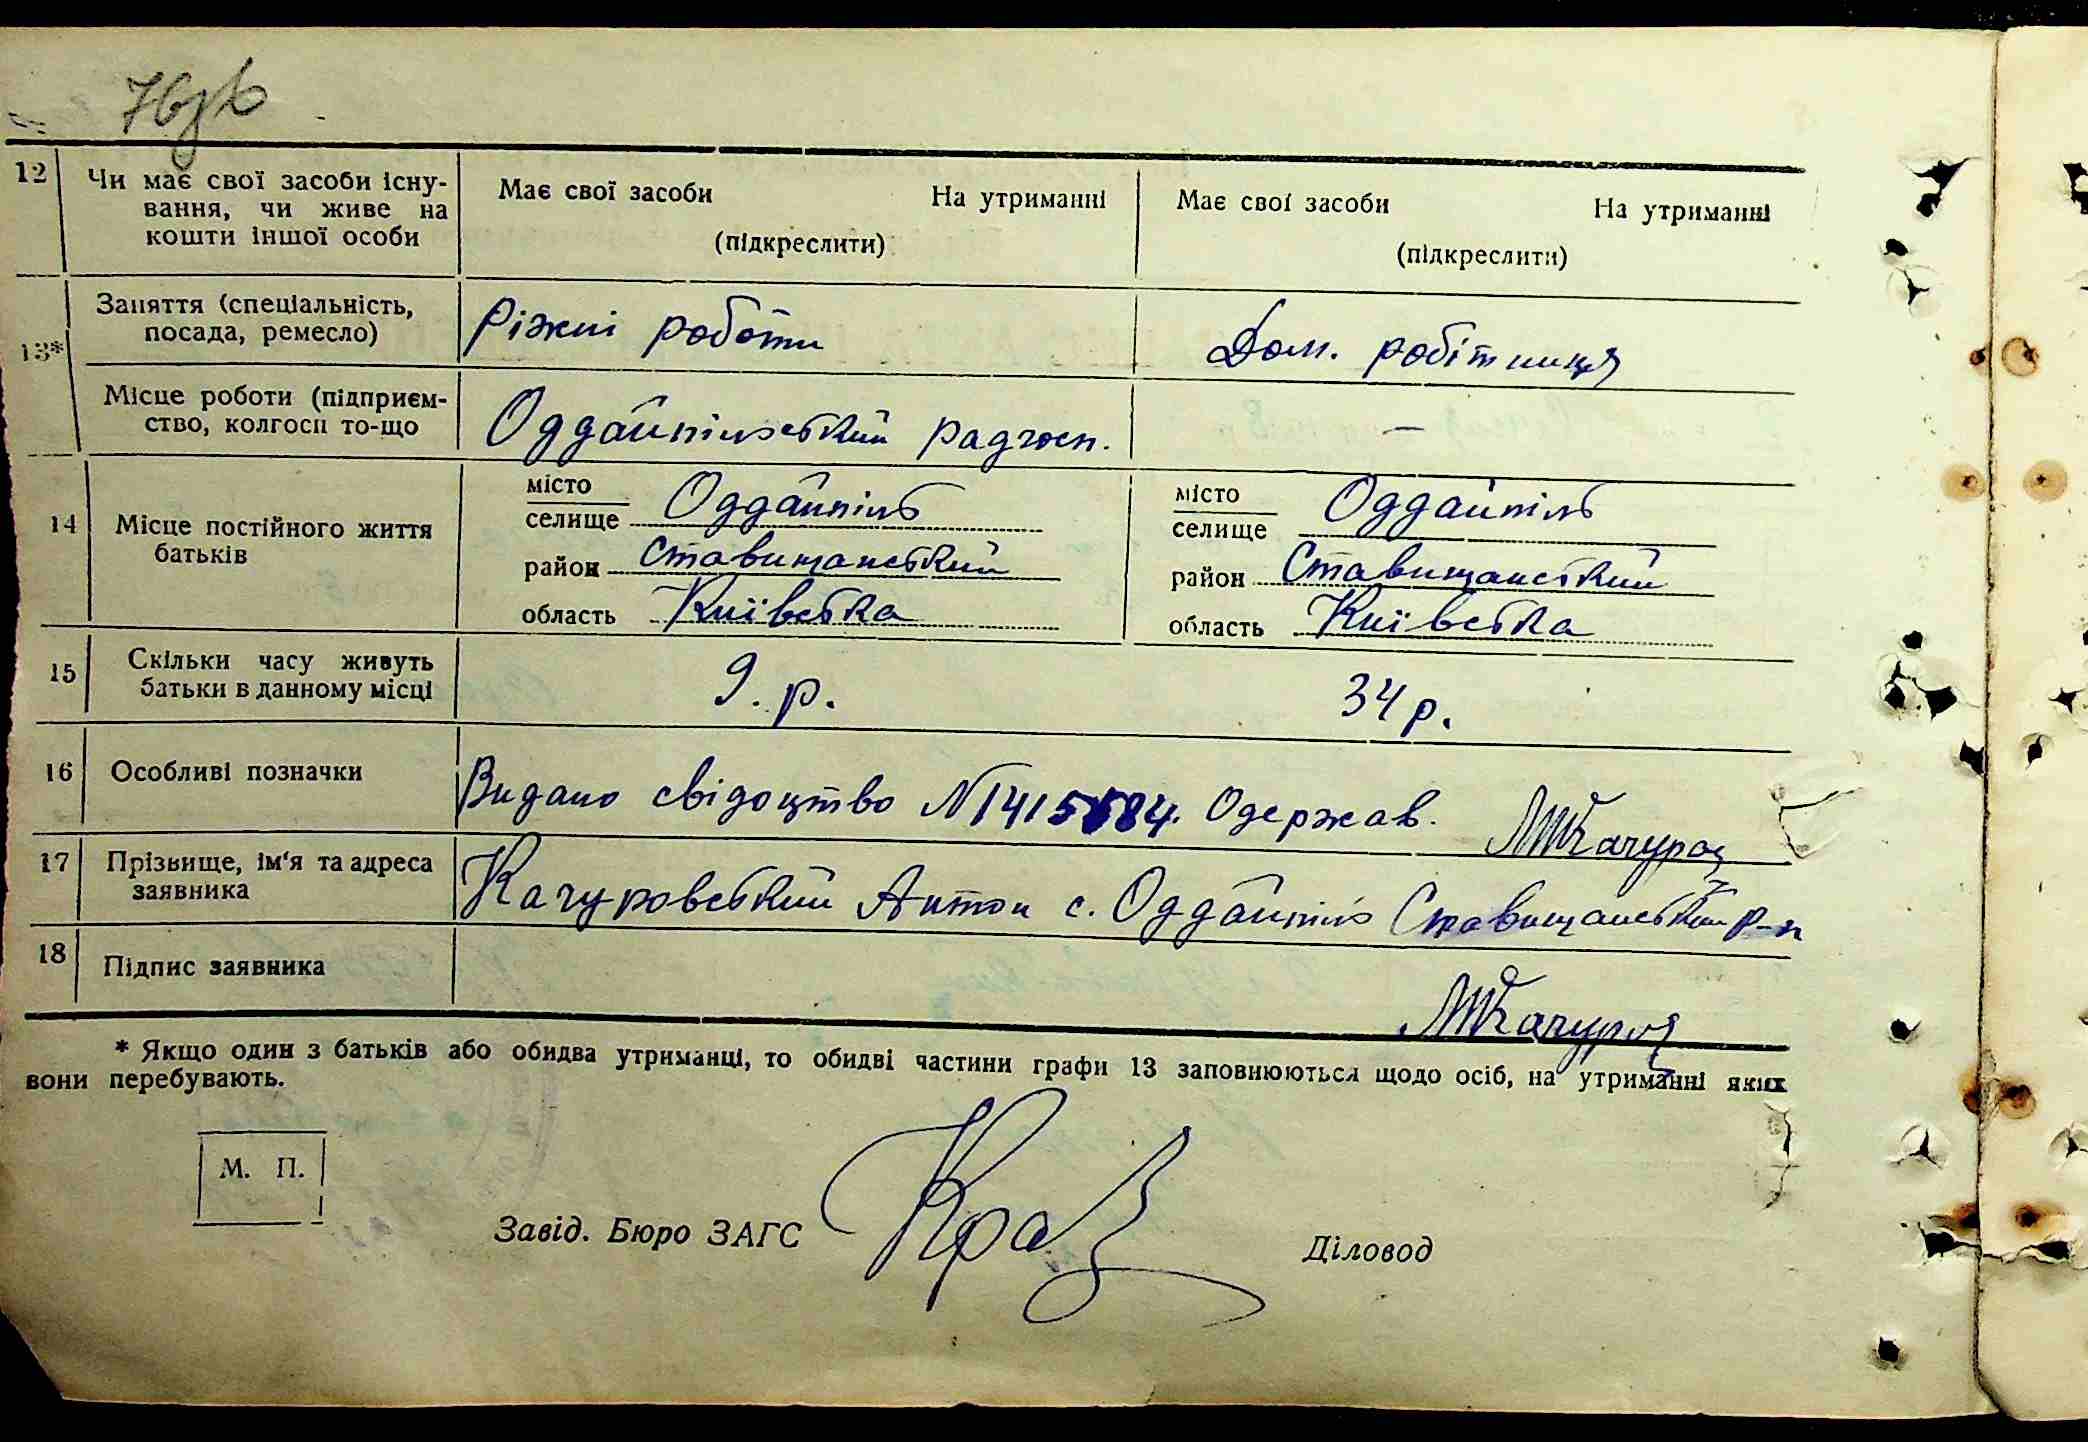 12 Чи має свої засоби існу-
вання, чи живе на
кошти іншої особи
Має свої засоби На утриманні
(підкреслити)
Має свої засоби На утриманні
(підкреслити)
13*
Заняття (спеціальність,
посада, ремесло)
Ріжні роботи
Дом. робітниця
Місце роботи (підприєм-
ство, колгосп то-що
Оддайпільський радгосп.
—
14 Місце постійного життя
батьків
місто
селище Оддайпіль
район Ставищанський
область Київська
місто
селище Оддайпіль
район Ставищанський
область Київська
15 Скільки часу живуть
батьки в данному місці
9. р.
34 р.
16 Особливі позначки
Видано свідоцтво Одержав.
17 Прізвище, ім'я та адреса
заявника
Качуровський Антон с. Оддайпіль Ставищанський р-н
18 Підпис заявника
* Якщо один з батьків або обидва утриманці, то обидві частини графи 13 заповнюються щодо осіб, на утриманні яких
вони перебувають.
М. П.
Завід. Бюро ЗАГС
Діловод